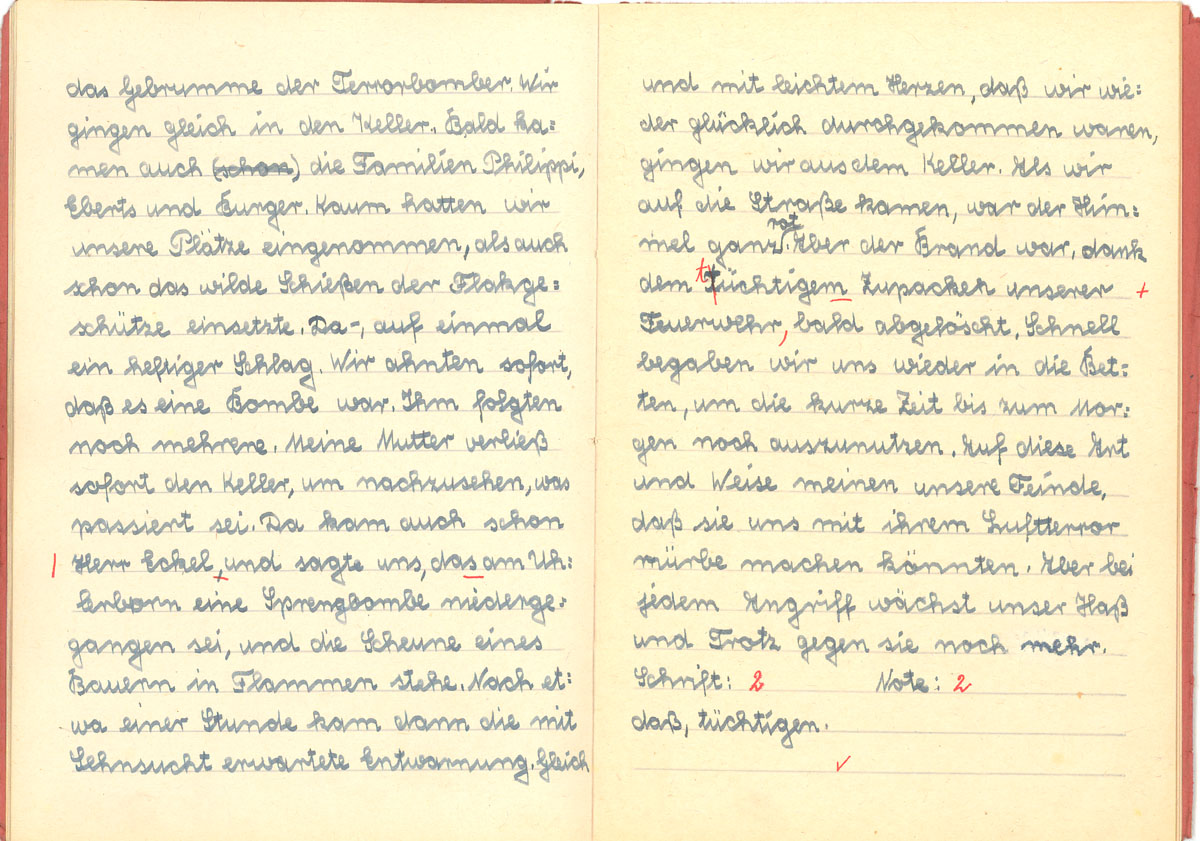 das Gebrumme der Terrorbomber. Wir
gingen gleich in den Keller. Bald ka=
men auch (schon) die Familien Philippi,
Eberts und Burger. Kaum hatten wir
unsere Plätze eingenommen, als auch
schon das wilde Schießen der Flakge=
schütze einsetzte. Da-, auf einmal
ein heftiger Schlag. Wir ahnten sofort,
daß es eine Bombe war. Ihm folgten
noch mehrere. Meine Mutter verließ
sofort den Keller, um nachzusehen, was
passiert sei. Da kam auch schon
Herr Eckel, und sagte uns, das am Uh=
lerborn eine Sprengbombe niederge=
gangen sei, und die Scheune eines
Bauern in Flammen stehe. Nach et=
wa einer Stunde kam dann die mit
Sehnsucht erwartete Entwarnung. Gleich
und mit leichtem Herzen, daß wir wie=
der glücklich durchgekommen waren,
gingen wir aus dem Keller. Als wir
auf die Straße kamen, war der Him=
mel ganz rot. Aber der Brand war, dank
dem tüchtigem Zupacken unserer +
Feuerwehr, bald abgelöscht. Schnell
begaben wir uns wieder in die Bet=
ten, um die kurze Zeit bis zum Mor=
gen noch auszunutzen. Auf diese Art
und Weise meinen unsere Feinde,
daß sie uns mit ihrem Luftterror
mürbe machen könnten. Aber bei
jedem Angriff wächst unser Haß
und Trotz gegen sie noch mehr.
Schrift: 2 Note: 2
daß, tüchtigen.